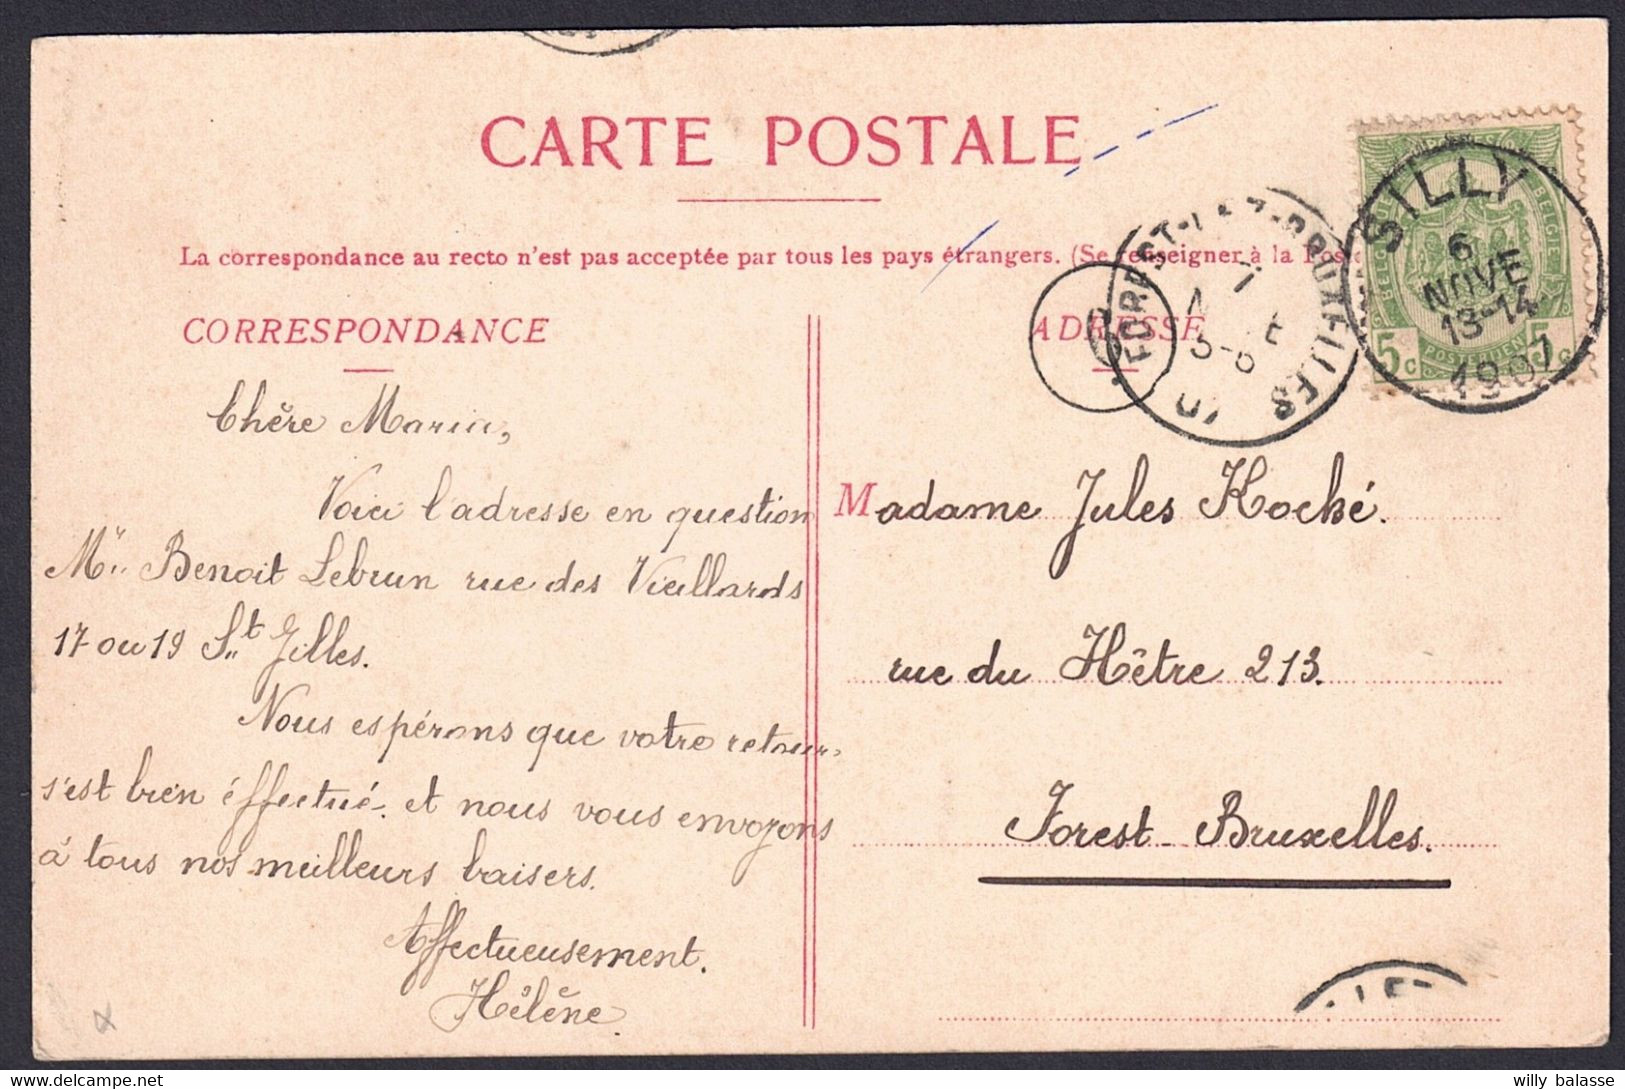 CARTE POSTALE
La correspondance au recto n'est pas acceptée par tous les pays étrangers. (Se renseigner à la Poste
CORRESPONDANCE
ADRESSE
SILLY
6
NOVE
13-14
1907
FOREST-LEZ-BRUXELLES
7
5-6
07
BELGIQUE
BELGIE
POSTERIJEN
5c
5c
Chère Maria,
Voici l'adresse en question
Mr Benoit Lebrun rue des Vieillards
17 ou 19 St Gilles.
Nous espérons que votre retour
s'est bien éffectué. et nous vous envoyons
à tous nos meilleurs baisers.
Affectueusement.
Hélène.
Madame Jules Hocké.
rue du Hêtre 213.
Forest-Bruxelles.
willy balasse